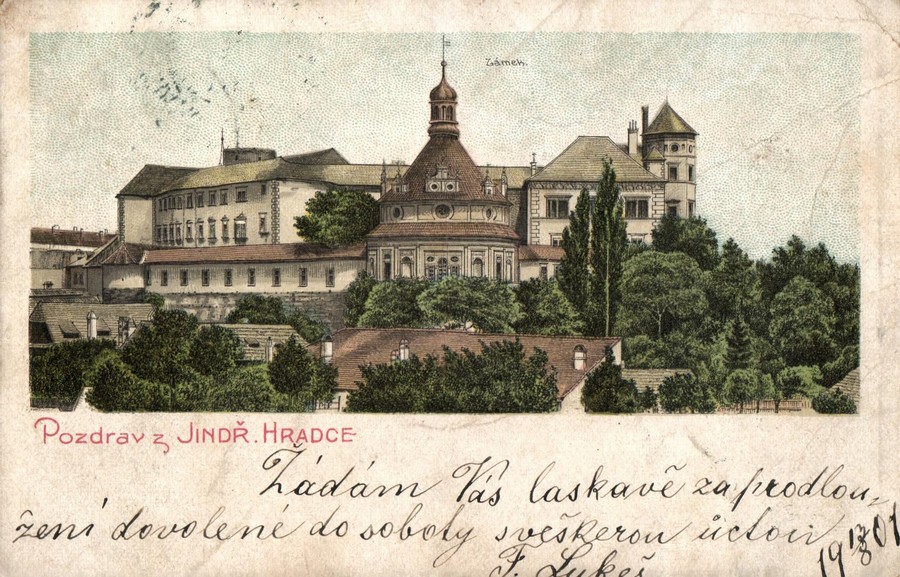 Zámek.
Pozdrav z JINDŘ. HRADCE
Žádám Vás laskavě za prodlou-
žení dovolené do soboty sveškerou úctou
F. Lukeš
19 12/8 01